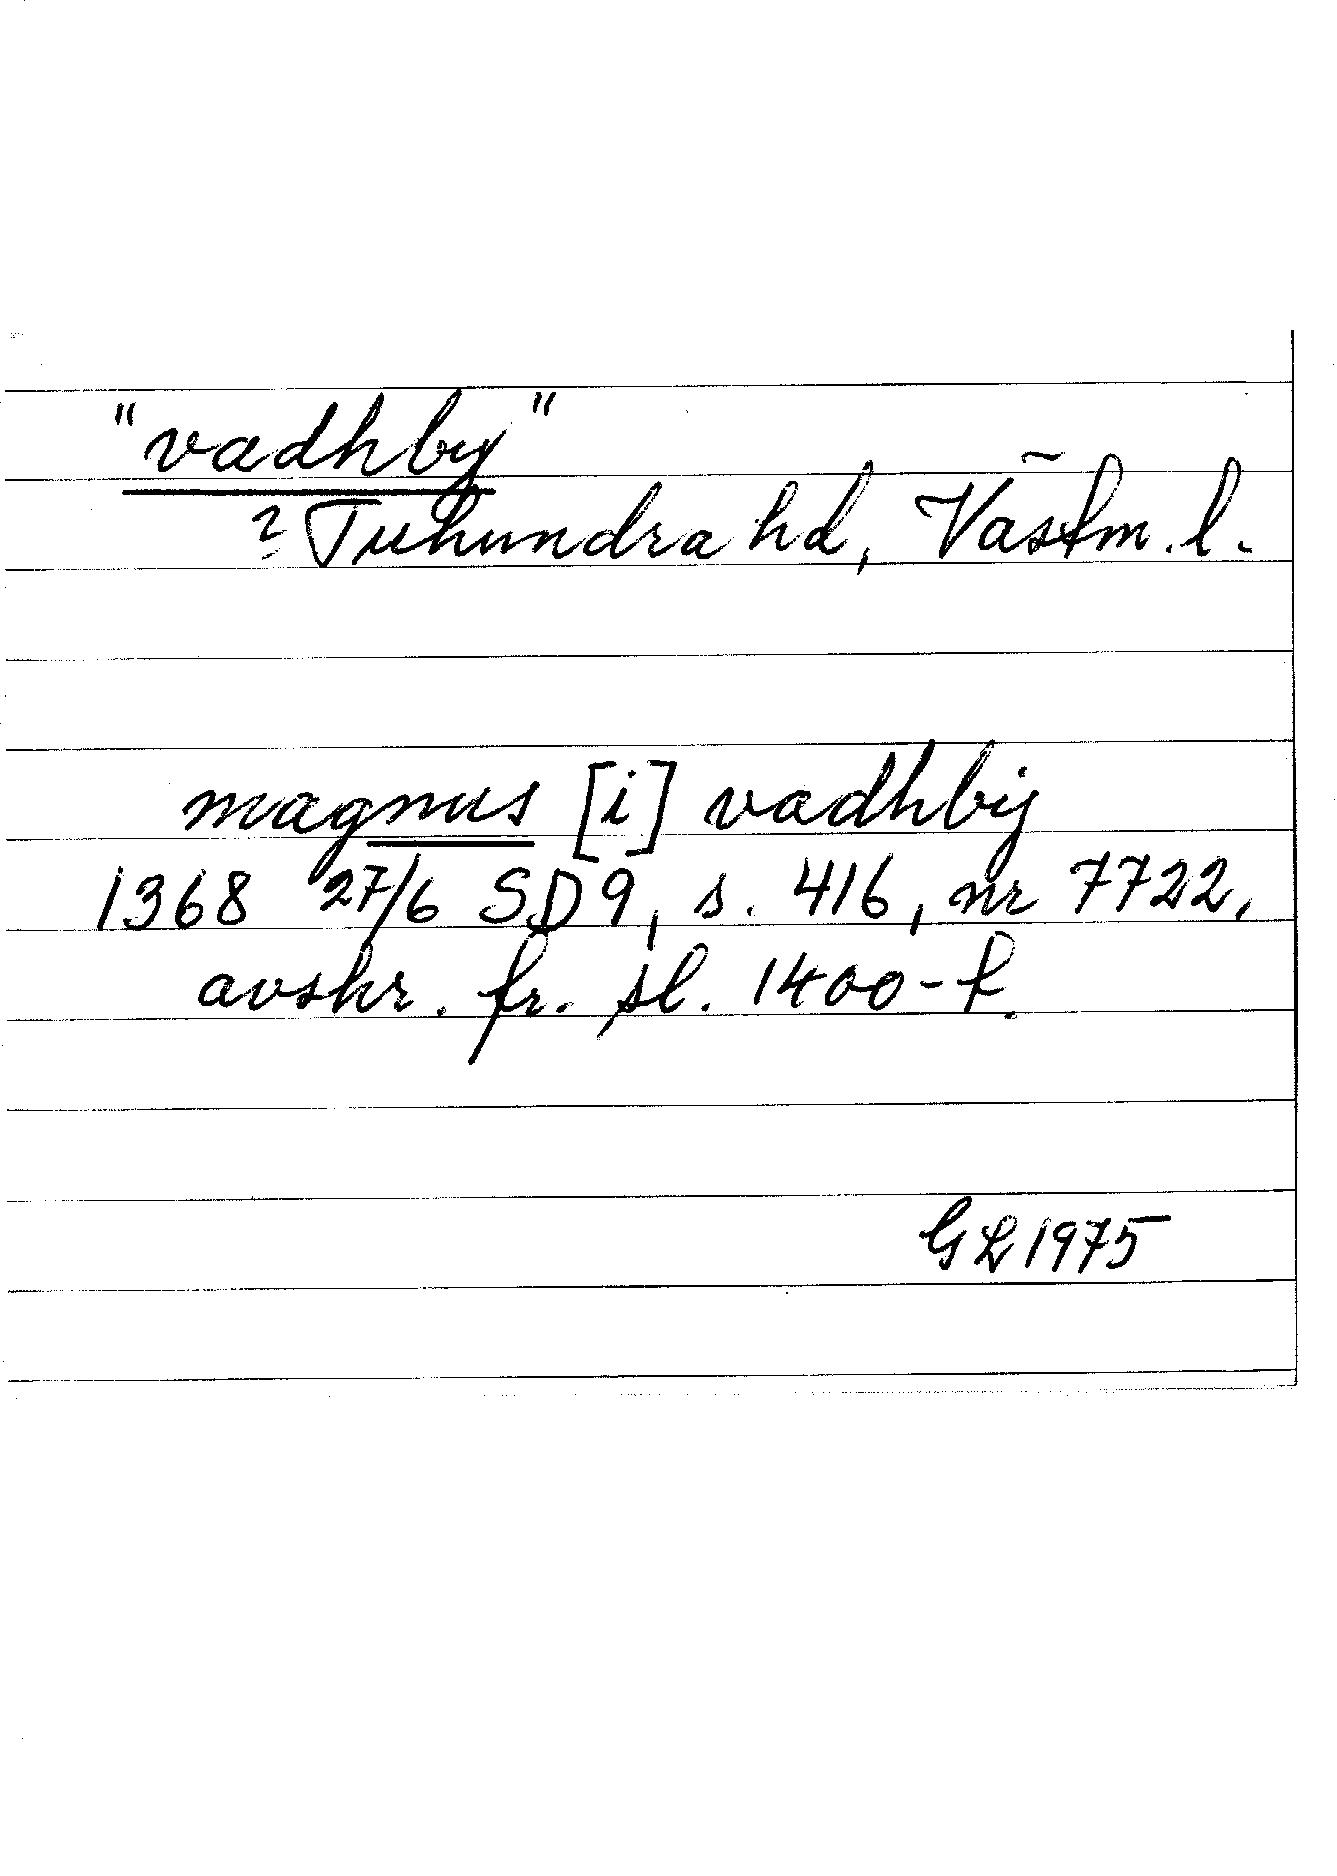 "vadhby"
? Tuhundra hd, Västm. l.
magnus [i] vadhby
1368 27/6 SD 9, s. 416, nr 7722,
avskr. fr. sl. 1400-t.
GL 1975